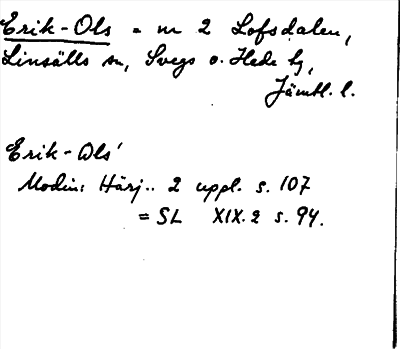 Erik-Ols = m 2 Lofsdalen,
Linsälls sn, Svegs o. Hede hg,
Jämtl. l.
Erik-Ols'
Modin: Härj.. 2 uppl. s. 107
= SL XIX. 2 s. 94.